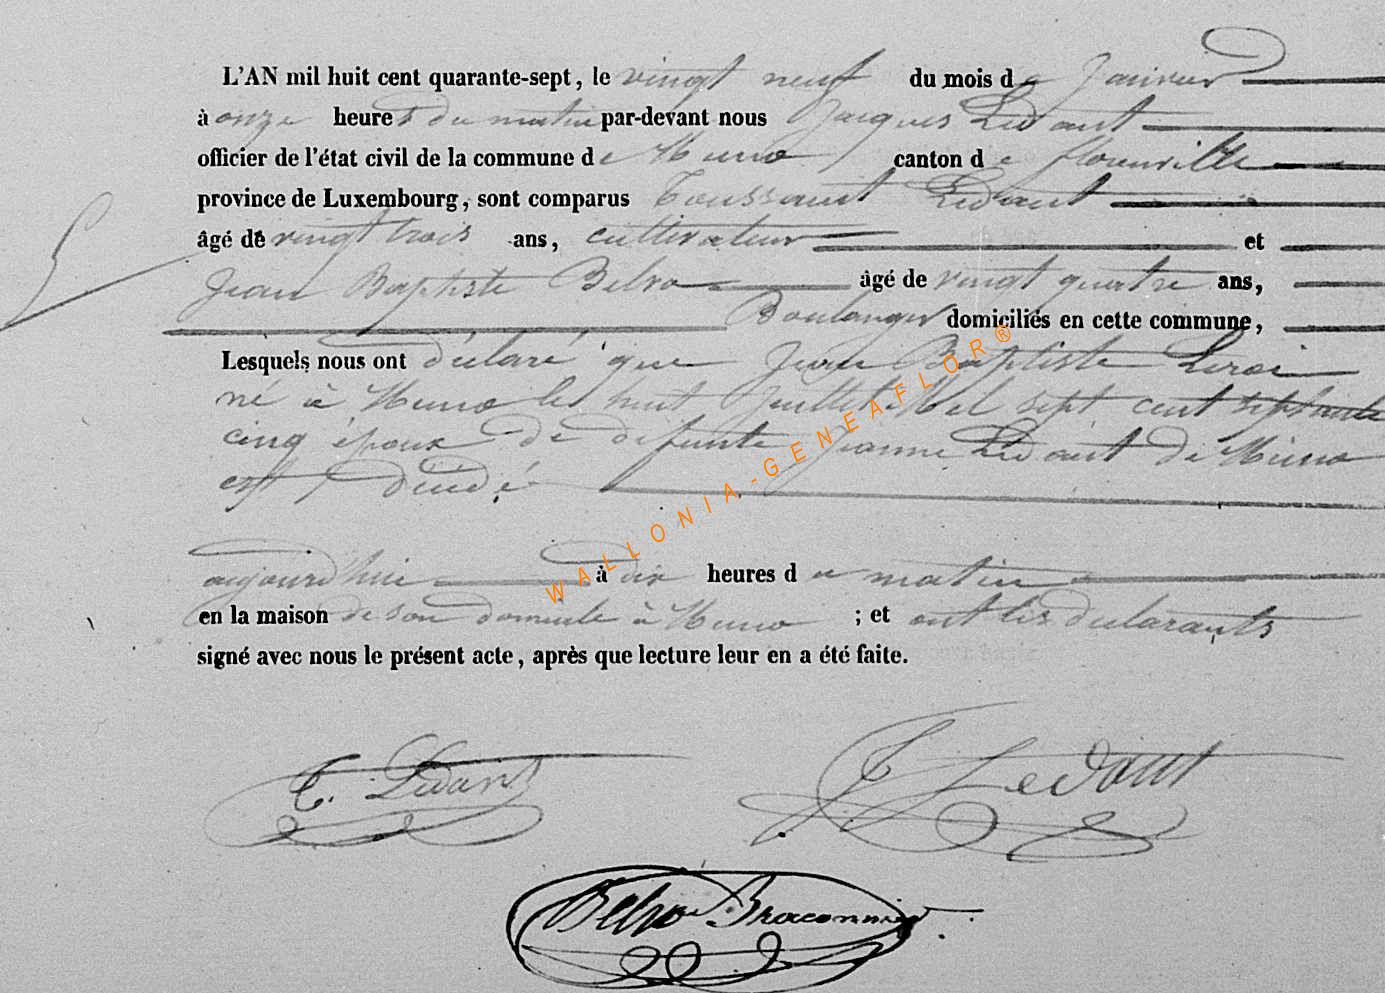 L'AN mil huit cent quarante-sept, le vingt neuf du mois de Janvier
à onze heures du matin par-devant nous Jacques Ledant
officier de l'état civil de la commune de Muno canton de florenville
province de Luxembourg, sont comparus Toussaint Ledant
âgé de vingt trois ans, cultivateur et
Jean Baptiste Belva âgé de vingt quatre ans,
Boulanger domiciliés en cette commune,
Lesquels nous ont déclaré que Jean Baptiste Leroi
né à Muno le huit Juillet Mil sept cent septante
cinq époux de défunte Jeanne Ledant de Muno
est décédé
aujourd'hui à dix heures du matin
en la maison de son domicile à Muno ; et ont les déclarants
signé avec nous le présent acte, après que lecture leur en a été faite.
T. Ledant J Ledant
Belva Braconnier
WALLONIA-GENEAFLOR®